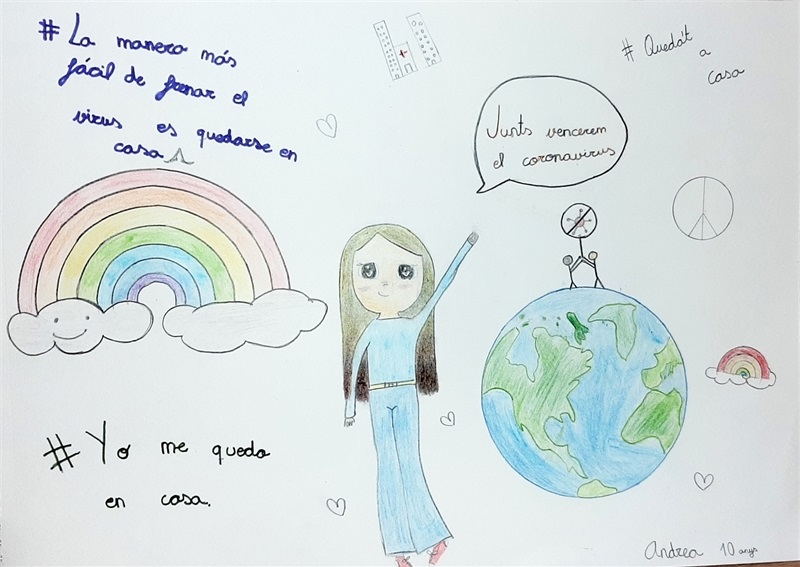 # La manera más
fácil de frenar el
virus es quedarse en
casa
# Quedá't
a
casa
Junts vencerem
el coronavirus
# Yo me quedo
en casa.
Andrea 10 anys